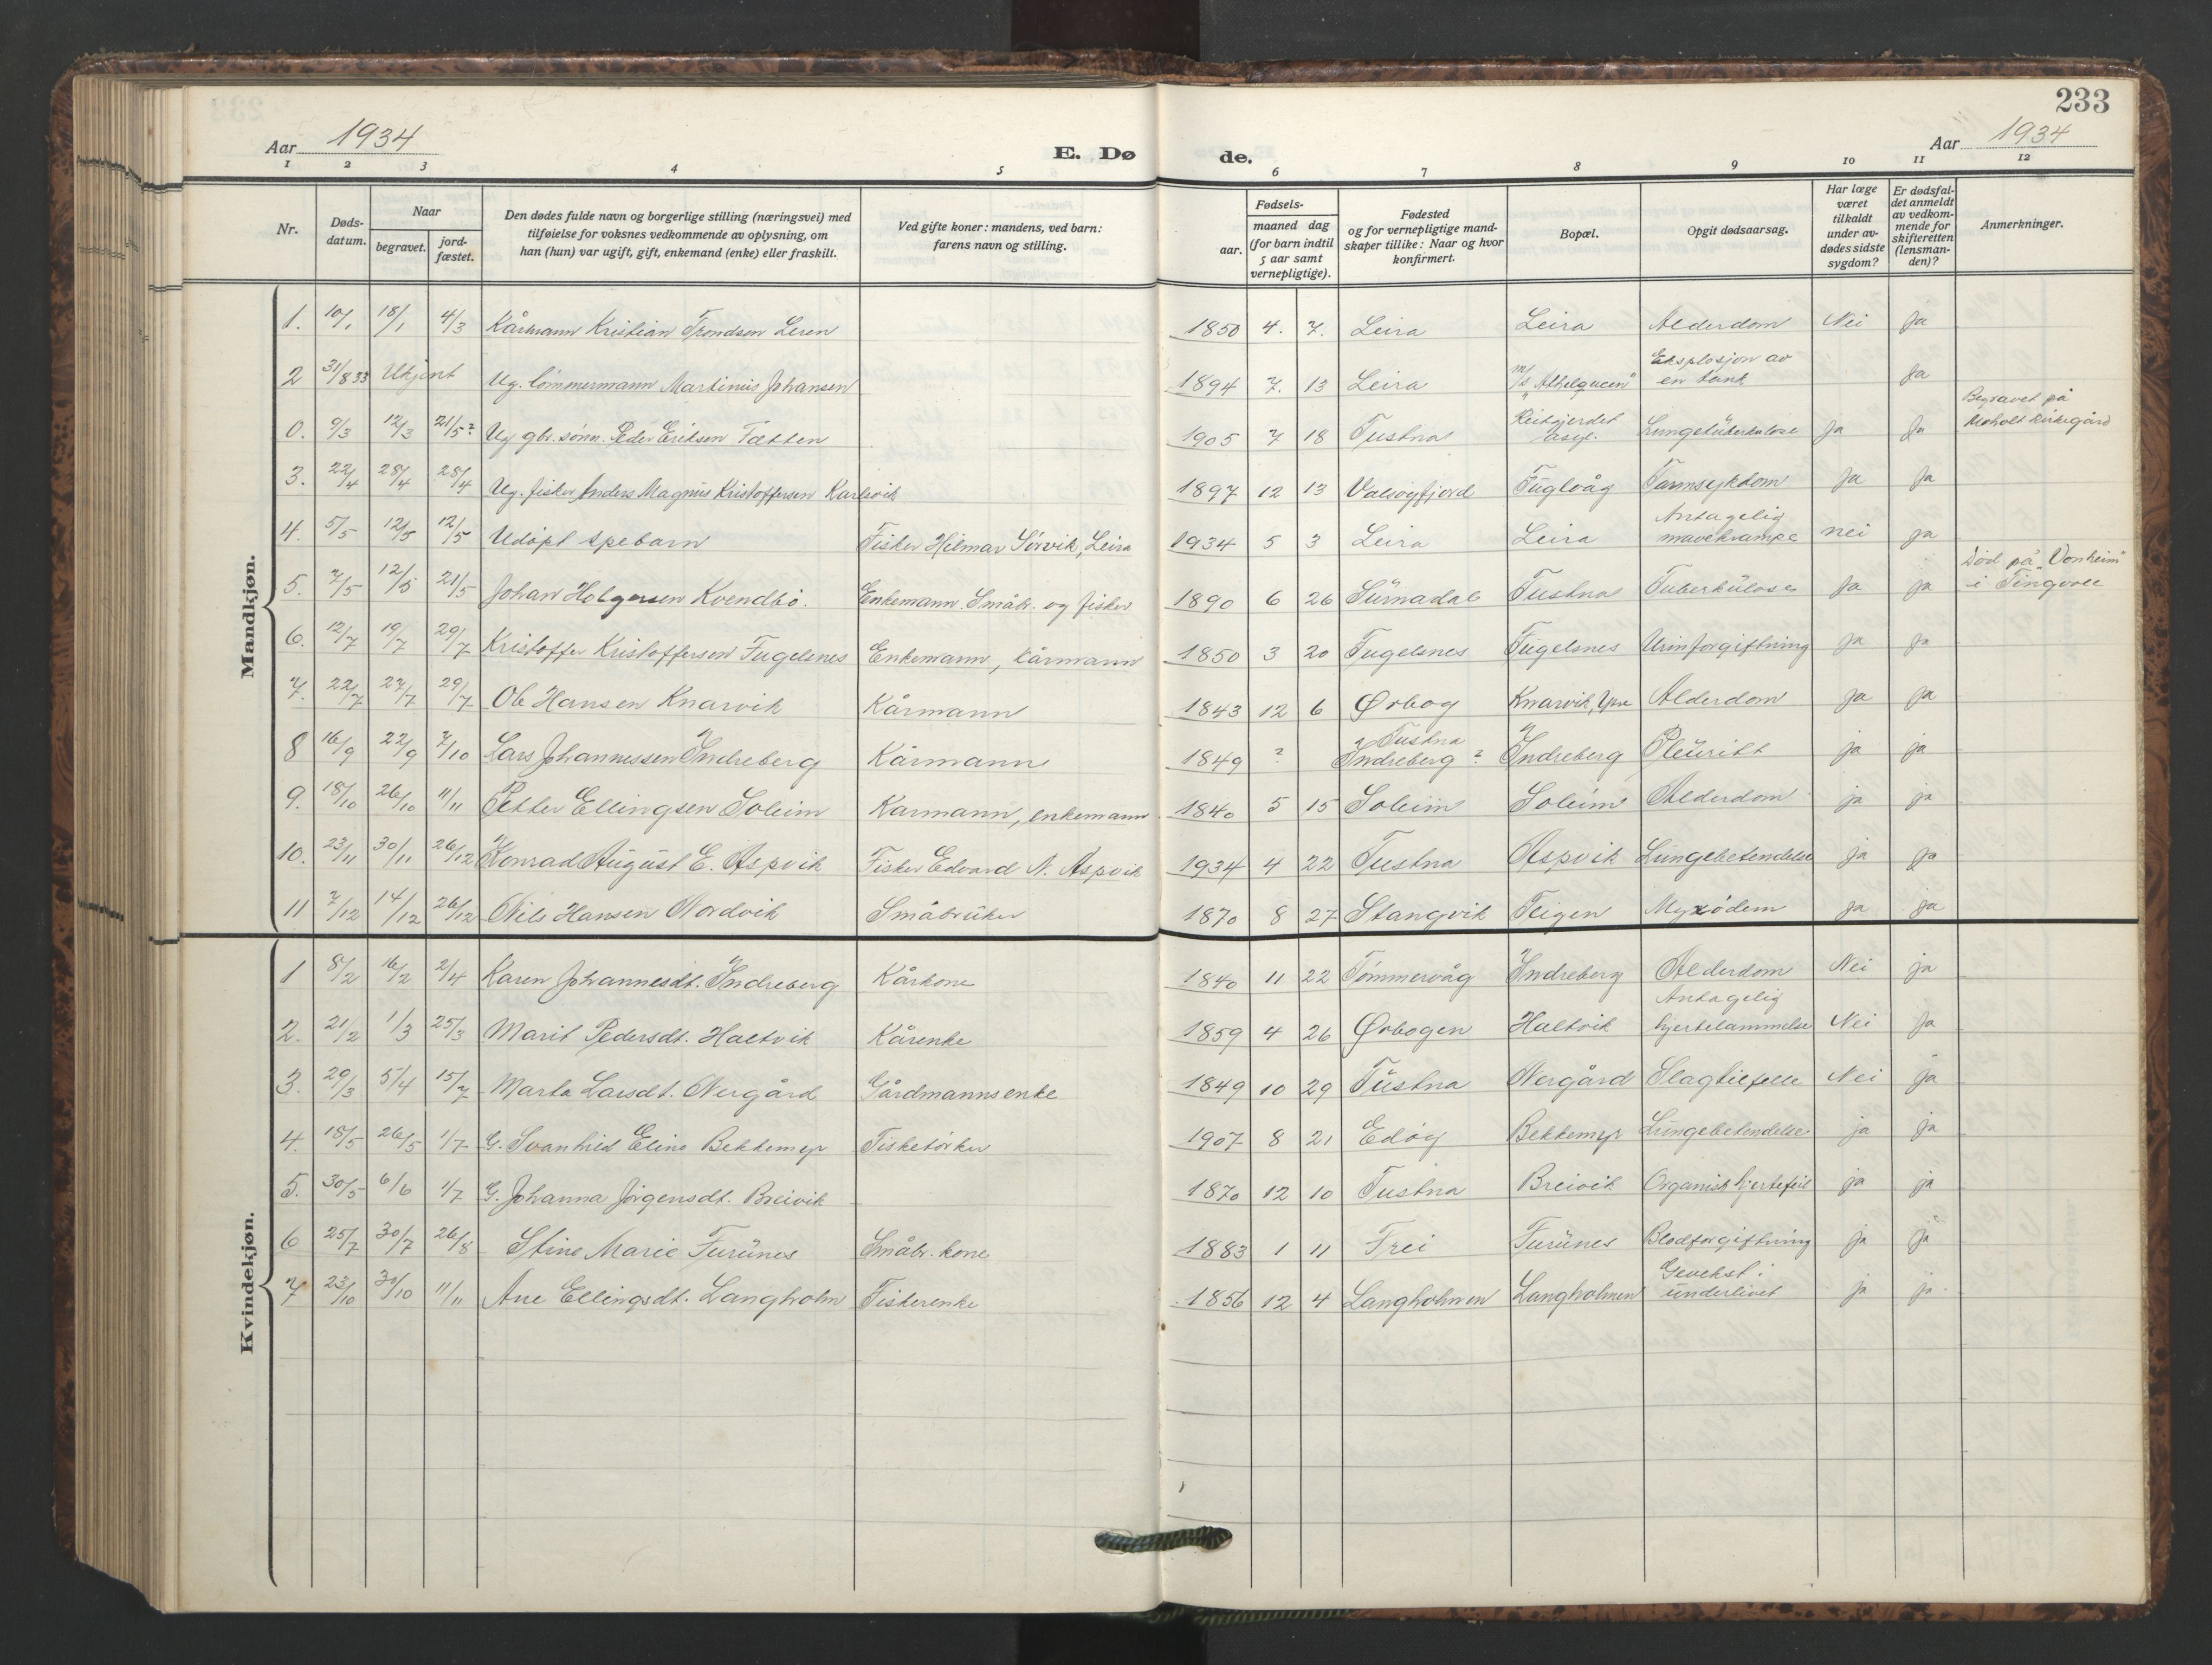 233
Aar 1934
E. Dø de.
Aar 1934
1 2 3 4 5 6 7 8 9 10 11 12
Nr.
Døds-
datum.
Naar
begravet.
jord-
fæstet.
Den dødes fulde navn og borgerlige stilling (næringsvei) med
tilføielse for voksnes vedkommende av oplysning, om
han (hun) var ugift, gift, enkemand (enke) eller fraskilt.
Ved gifte koner: mandens, ved barn:
farens navn og stilling.
Fødsels-
aar.
maaned dag
(for barn indtil
5 aar samt
vernepligtige).
Fødested
og for vernepligtige mand-
skaper tillike: Naar og hvor
konfirmert.
Bopæl.
Opgit dødsaarsag.
Har læge
været
tilkaldt
under av-
dødes sidste
sygdom?
Er dødsfal-
det anmeldt
av vedkom-
mende for
skifteretten
(lensman-
den)?
Anmerkninger.
Mandkjøn.
1. 10/1 18/1 4/3 Kårmann Kristian Trondsen Leren 1850 4. 7. Leira Leira Alderdom Nei Ja
2 31/8 33 Ukjent Ug. tömmermann Martinus Johansen 1894 7. 13 Leira m/s "Athelqueen" Eksplosjon av en tank Ja
0. 9/3 12/3 21/5? Ug gbr. sönn. Peder Eriksen Tætten 1905 7 18 Tustna Reitgjerdet asyl. Lungetuberkulose Ja Ja Begravet på Moholt kirkegård
3. 22/4 28/4 28/4 Ug. fisker Anders Magnus Kristoffersen Karlsvik 1897 12 13 Valsøyfjord Fuglvåg Tarmsykdom Ja Ja
4. 5/5 12/5 12/5 Udöpt spebarn Fisker Hilmar Sørvik, Leira 1934 5 3 Leira Leira Antagelig mavekrampe nei ja
5. 7/5 12/5 21/5 Johan Holgersen Kvendbö. Enkemann. Småbr. og fisker 1890 6 26 Surnadal Tustna Tuberkulose Ja ja Död på "Vonheim" i Tingvoll
6. 12/7 19/7 29/7 Kristoffer Kristoffersen Fugelsnes Enkemann, kårmann 1850 3 20 Fugelsnes Fugelsnes Urinforgiftning ja ja
7. 22/7 27/7 29/7 Ole Hansen Knarvik Kårmann 1843 12 6 Ørbog Knarvik, Alderdom ja ja
8 16/9 22/9 7/10 Lars Johannessen Indreberg Kårmann 1849 ? Tustna ? Indreberg ? Indreberg Pleuritt ja ja
9. 18/10 26/10 11/11 Petter Ellingsen Soleim Kårmann, enkemann 1840 5 15 Soleim Soleim Alderdom ja ja
10. 23/11 30/11 26/12 Konrad August E. Aspvik Fisker Edvard N. Aspvik 1934 4 22 Tustna Aspvik Lungebetendelse ja ja
11 7/12 14/12 26/12 Nils Hansen Nordvik Småbruker 1870 8 27 Stangvik Teigen Myxödem ja ja
Kvindekjøn.
1 8/2 16/2 2/4 Karen Johannesdt. Indreberg Kårkone 1840 11 22 Tømmervåg Indreberg Alderdom Nei ja
2. 21/2 1/3 25/3 Marit Pedersdt. Haltvik Kårenke 1859 4 26 Ørbogen Haltvik Antagelig hjertelammelse Nei Ja
3. 29/3 5/4 15/7 Marta Larsdt. Nergård Gårdmannsenke 1849 10 29 Tustna Nergård Slagtilfelle Nei ja
4. 18/5 26/5 1/7 G. Svanhild Eline Bekkemyr Fisketörker 1907 8 21 Edöy Bekkemyr Lungebetendelse ja ja
5. 30/5 6/6 1/7 G. Johanna Jörgensdt. Breivik 1870 12 10 Tustna Breivik Organisk hjertefeil ja ja
6 25/7 30/7 26/8 Stine Marie Furunes Småbr. kone 1883 1 11 Frei Furunes Blodforgiftning ja ja
7 23/10 30/10 11/11 Ane Ellingsdt. Langholm Fiskerenke 1856 12 4 Langholmen Langholmen Gevekst i underlivet ja ja